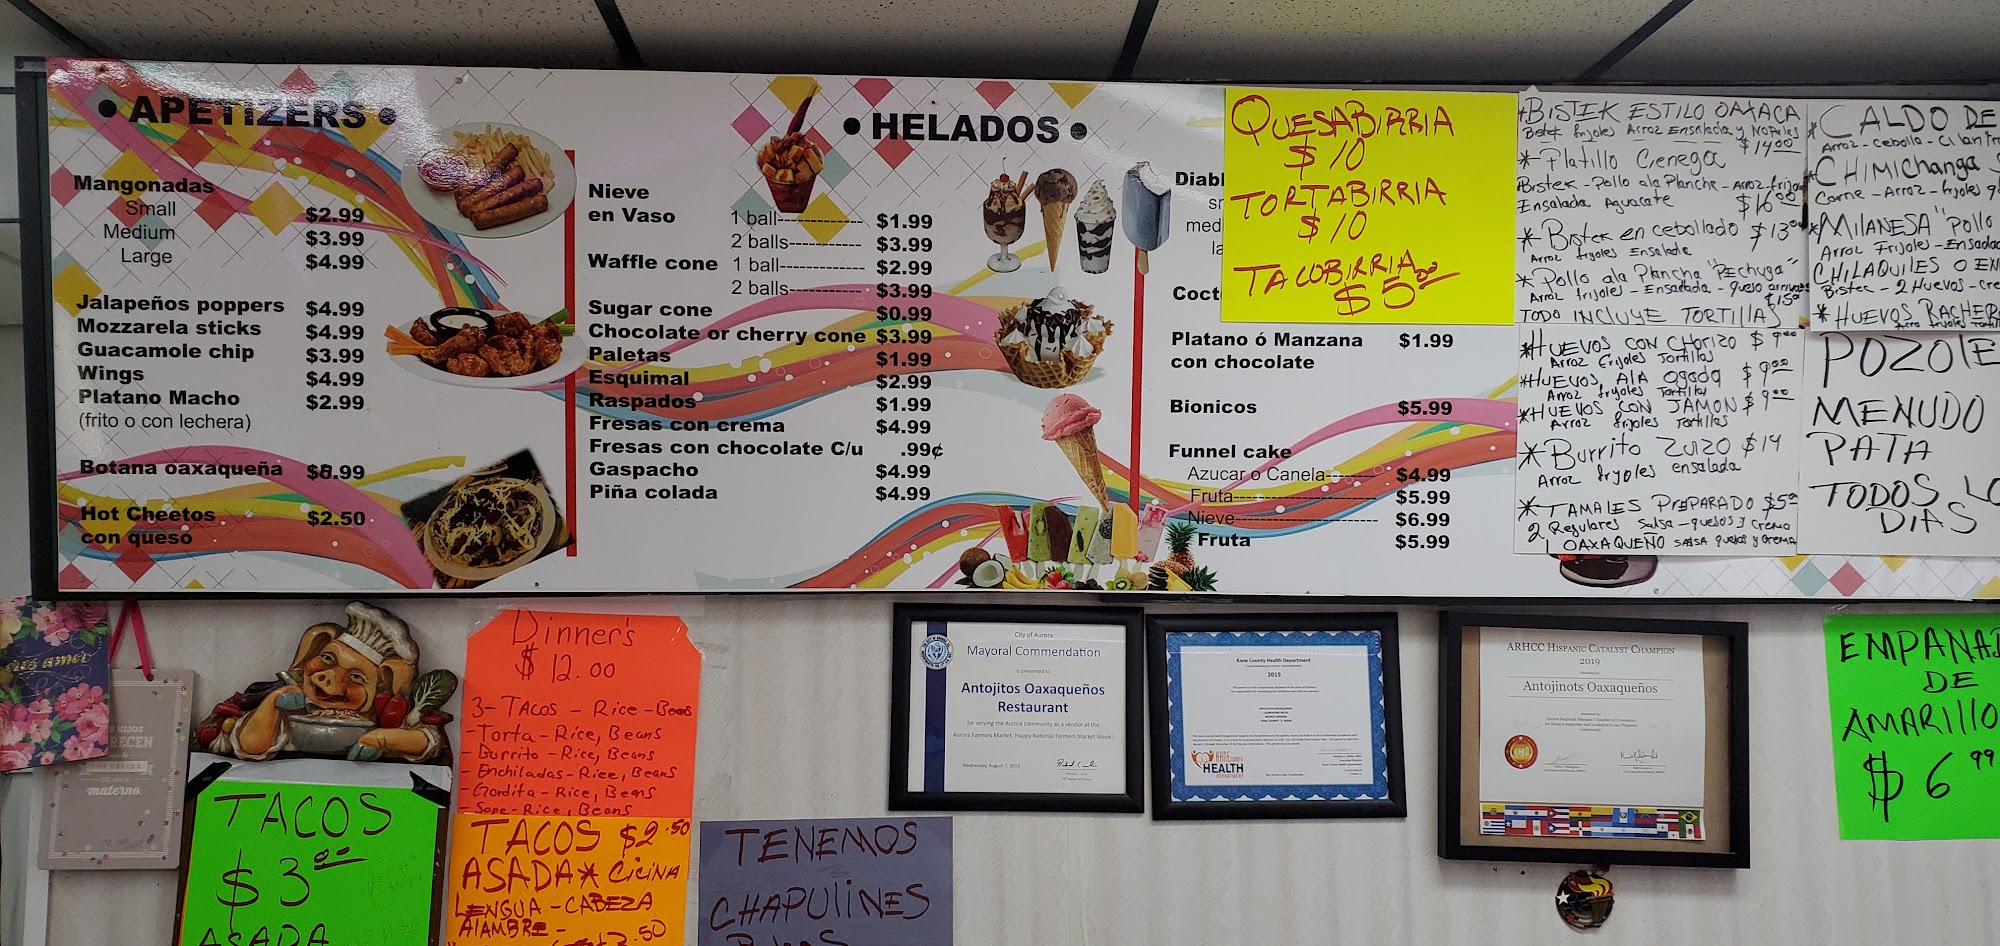 • APETIZERS •
Mangonadas
Small $2.99
Medium $3.99
Large $4.99
Jalapeños poppers $4.99
Mozzarela sticks $4.99
Guacamole chip $3.99
Wings $4.99
Platano Macho $2.99
(frito o con lechera)
Botana oaxaqueña $8.99
Hot Cheetos $2.50
con queso
• HELADOS •
Nieve
en Vaso
1 ball------------- $1.99
2 balls----------- $3.99
Waffle cone 1 ball------------- $2.99
2 balls----------- $3.99
Sugar cone $0.99
Chocolate or cherry cone $3.99
Paletas $1.99
Esquimal $2.99
Raspados $1.99
Fresas con crema $4.99
Fresas con chocolate C/u .99¢
Gaspacho $4.99
Piña colada $4.99
Diabl
sr
med
la
Coct
Platano ó Manzana $1.99
con chocolate
Bionicos $5.99
Funnel cake
Azucar o Canela------- $4.99
Fruta----------------------- $5.99
Nieve----------------------- $6.99
Fruta $5.99
QUESABIRRIA
$10
TORTABIRRIA
$10
TACOBIRRIA
$5.00
*BISTEK ESTILO OAXACA
Bistek frijoles Arroz Ensalada y NOPales
$14.00
*-Platillo Cienega
Bistek-Pollo ala Planche-Arroz-frijo
Ensalada Aguacate $16.00
*Bistek en cebollado $13.00
Arroz frijoles Ensalada
*Pollo ala Plancha "Pechuga"
Arroz frijoles-Ensalada-queso
$15.00
TODO INCLUYE TORTILLAS
*HUEVOS CON CHORIZO $9.00
Arroz frijoles Tortillas
*HUEVOS, ALA Ogada $9.00
Arroz frijoles Tortillas
*HUEVOS CON JAMON $9.00
Arroz frijoles Tortillas
*Burrito Zuizo $14
Arroz fryoles ensalada
*TAMALES PREPARADO $5.00
2 Regulares Salsa-quesos y Crema
1 OAXAQUEÑO SALSA quesos y crema
*CALDO DE
Arroz-Cebolla-Cilantro
*CHIMIChanga
Carne-Arroz-frijoles
*MILANESA "Pollo
Arroz Frijoles-Ensalada
CHILAQUILES O EN
Bistec-2 Huevos-Cre
*HUEVOS RACHER
Arroz frijoles Tortill
POZOLE
MENUDO
PATA
TODOS LO
DIAS
Dinner's
$12.00
3-TACOS-Rice-Beans
-Torta-Rice, Beans
-Burrito-Rice, Beans
-Enchiladas-Rice, Beans
-Gordita-Rice, Beans
-Sope-Rice, Beans
TACOS
$3.00
ASADA
TACOS $2.50
ASADA*CiCiNA
LENGUA-CABEZA
AlAMBRE-
3.50
TENEMOS
CHAPULINES
City of Aurora
Mayoral Commendation
is presented to
Antojitos Oaxaqueños
Restaurant
for serving the Aurora community as a vendor at the
Aurora Farmers Market. Happy National Farmers Market Week!
Wednesday, August 7, 2019
Kane County Health Department
2019
KANE COUNTY
HEALTH
DEPARTMENT
ARHCC HISPANIC CATALYST CHAMPION
2019
Antojinots Oaxaqueños
EMPANAD
DE
AMARILLO
$6.99
amor
HIJOS
RECEN
materno.